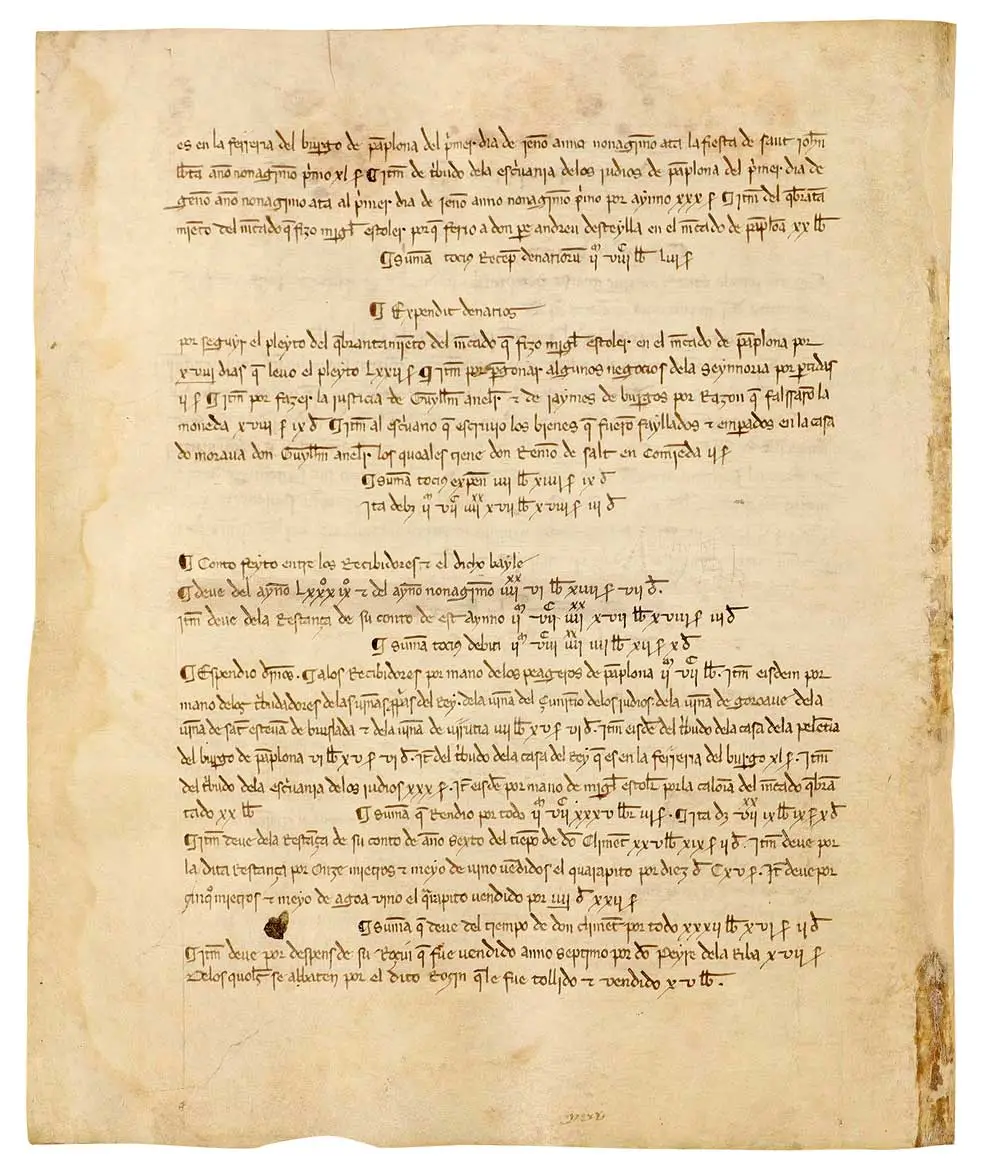 es en la ferreria del burgo de pãplona del p̃mer dia de jeño anno nonagimo ata la fiesta de saut joħn
bb̃ta ano nonagimo p̃mo xl ß ¶ Itm̃ de t̃budo dela esc̃uania delos judios de pãplona del p̃mer dia de
geño ano nonagimo ata al p̃mer dia de jeño anno nonagimo p̃mo por aynno xxx ß ¶ Itm̃ del q̃branta
mieto del m̃cado q̃ fizo migl̃ estoler porq̃ ferio a don pe andreu desteylla en el m̃cado de pãploã xx lb̃
¶ Sum̃a tociꝰ Recep̃ denarioru͂ ijᵐ viijᶜ lb̃ Lvij ß
¶ Expendit denarios
por seguyr el pleyto del q̃brantamieto del m̃cado q̃ fizo migl̃ estoler en el m̃cado de pãplona por
xviij dias q̃ levo el pleyto Lxxij ß ¶ Itm̃ por p̃gonar algunos negocios dela seynnoria por p̃tidas
ij ß ¶ Itm̃ por fazer la justicia de Guyll̃m anel̃r ⁊ de jaymes de burgos por Razon q̃ falssaro͂ la
moneda xviij ß ix d̃ ¶ Itm̃ al esc̃uano q̃ escrivio los bienes q̃ fuero͂ fayllados ⁊ emp̃ados en la casa
do morava don Guyll̃m anel̃r los quoales tiene don Remo de salt en Comieda ij ß
¶ Sum̃a tociꝰ expen̄ iiij lb̃ xiiij ß ix d̃
Ita deb₃ ijᵐ vijᶜ iiijˣˣ xvij lb̃ xviij ß iij d̃
¶ Conto feyto entre los Recibidores ⁊ el dicho bayle
¶ deve del ayño Lxxxº ixº ⁊ del ayño nonagimo iiijˣˣ vi lb̃ xiiij ß vij d̃.
Itm̃ deve dela Restança de su conto de est aynno ijᵐ vijᶜ iiijˣˣ xvij lb̃ xviij ß iij d̃
¶ Sum̃a tociꝰ debiti ijᵐ viijᶜ iiijˣˣ iiij lb̃ xij ß x d̃
¶ Espendio d̃nios. ¶ alos Recibidores por mano delos peageros de pãplona ijᵐ vijᶜ lb̃. Itm̃ eisdem por
mano delos t̃budadores delas vinas p̃pas del Rey. dela vina del Cimit̃io delos judios. dela vina de goroave dela
vina de sat̃ esteuã de burlada ⁊ dela vina de urrutia viij lb̃ xv ß vi d̃. Itm̃ eisde͂ del t̃budo dela casa dela peletia
del burgo de pãplona vi lb̃ xv ß vi d̃. It̃ del t̃budo dela casa del Rey q̃ es en la ferreria del burgo xl ß. Itm̃
del t̃budo dela esc̃uania delos judios xxx ß. It̃ eisde͂ por mano de migl̃ estol̃r por la calonia del m̃cado q̃bra͂
tado xx lb̃
¶ Sum̃a q̃ Rendio por todo ijᵐ vijᶜ xxxv lb̃r vij ß. ¶ Ita d₃ viiˣˣ ix lb̃ ix ß x d̃
¶ Itm̃ deve dela Restança de su conto de año sexto del tiempo de do͂ Climet͂ xxv lb̃ xix ß ij d̃. Itm̃ deve por
la dita Restança por Onze mietros ⁊ meyo de vino ve͂didos el quarapito por diez d̃ Cxv ß. It̃ deve por
çinq̃ mietros ⁊ meyo de agoa vino el q̃rapito vendido por iiij d̃ xxij ß
¶ Sum̃a q̃ deve del tiempo de don climet͂ por todo xxxij lb̃ xvi ß ij d̃
¶ Itm̃ deve por despens de su Roçin q̃ fue vendido anno septimo por do͂ Peyre dela Riba xvij ß
Delos quoles se abaten por el dito Rozin q̃ le fue tollido ⁊ vendido xv lb̃.